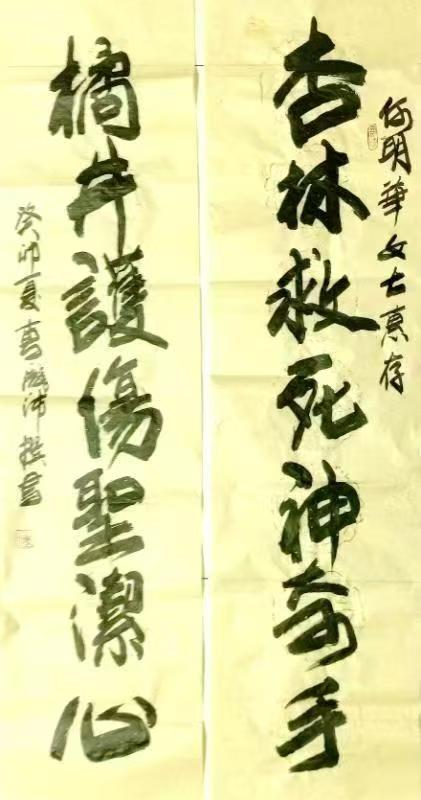 何明華女士惠存
杏林救死神奇手
橘井護傷聖潔心
癸卯夏 沛撰書